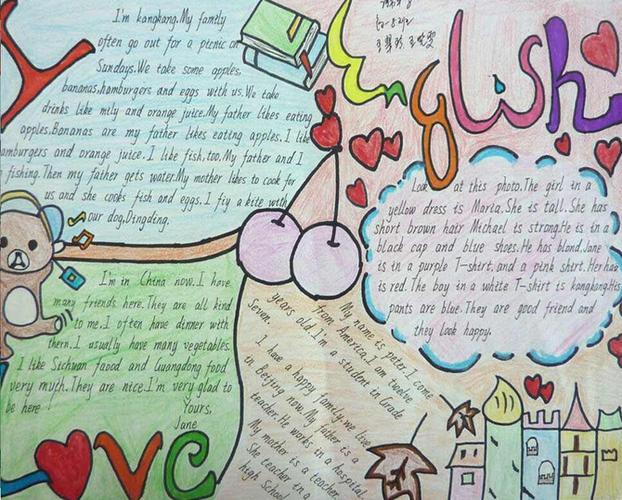 I
I'm kangkang.My family
often go out for a picnic on
Sundays.We take some apples,
bananas,hamburgers and eggs with us.We take
drinks like mily and orange juice.My father likes eating
apples.Bananas are my father likes eating apples. I like
hamburgers and orange juice. I like fish,too.My father and I
fishing.Then my father gets water.My mother likes to cook for
us and she cooks fish and eggs.I fiy a kite with
our dog,Dingding.
English
Look at this photo.The girl in a
yellow dress is Maria.She is tall.She has
short brown hair Michael is strong.He is in a
black cap and blue shoes.He has blond.Jane
is in a purple T-shirt,and a pink shirt.Her hair
is red.The boy in a white T-shirt is kangkang.His
pants are blue.They are good friend and
they look happy.
I'm in China now.I have
many friends here.They are all kind
to me.I often have dinner with
them.I usually have many vegetables.
I like Sichuan faood and Guangdong food
very myth.They are nice.I'm very glad to
be here
Yours,
Jane
My name is peter.I come
from America,I am twelve
years old.I'm a student in Grade
Seven.
I have a happy family.we live
in Beijing now.My father is a
teacher.He works in a hospital.
My mother is a teacher.
She teacher in a
high School
Love